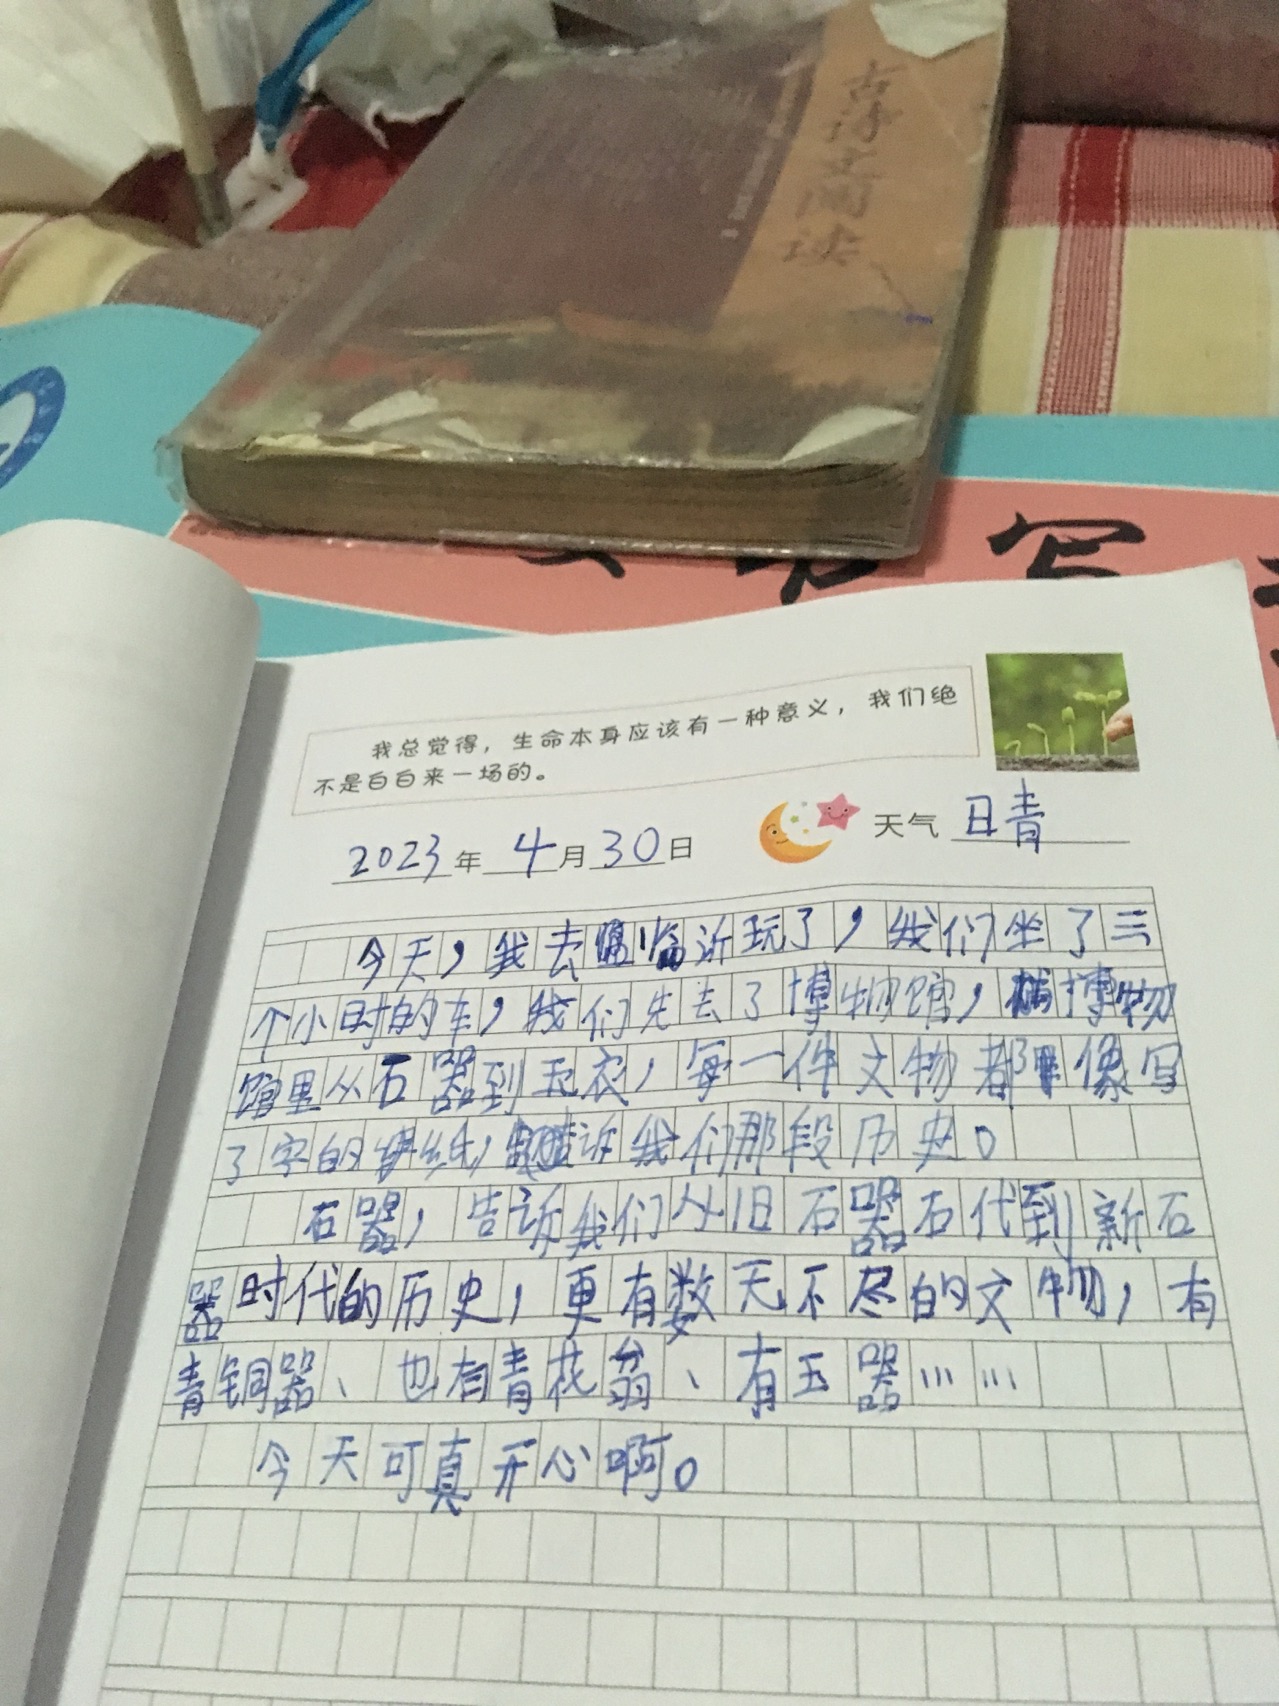 古诗文阅读
写
我总觉得，生命本身应该有一种意义，我们绝
不是白白来一场的。
2023年4月30日 天气 晴
今天，我去临沂玩了，我们坐了三
个小时的车，我们先去了博物馆，博物
馆里从石器到玉衣，每一件文物都像写
了字的纸，告诉我们那段历史。
石器，告诉我们从旧石器石代到新石
器时代的历史，更有数无不尽的文物，有
青铜器、也有青花翁、有玉器……
今天可真开心啊。